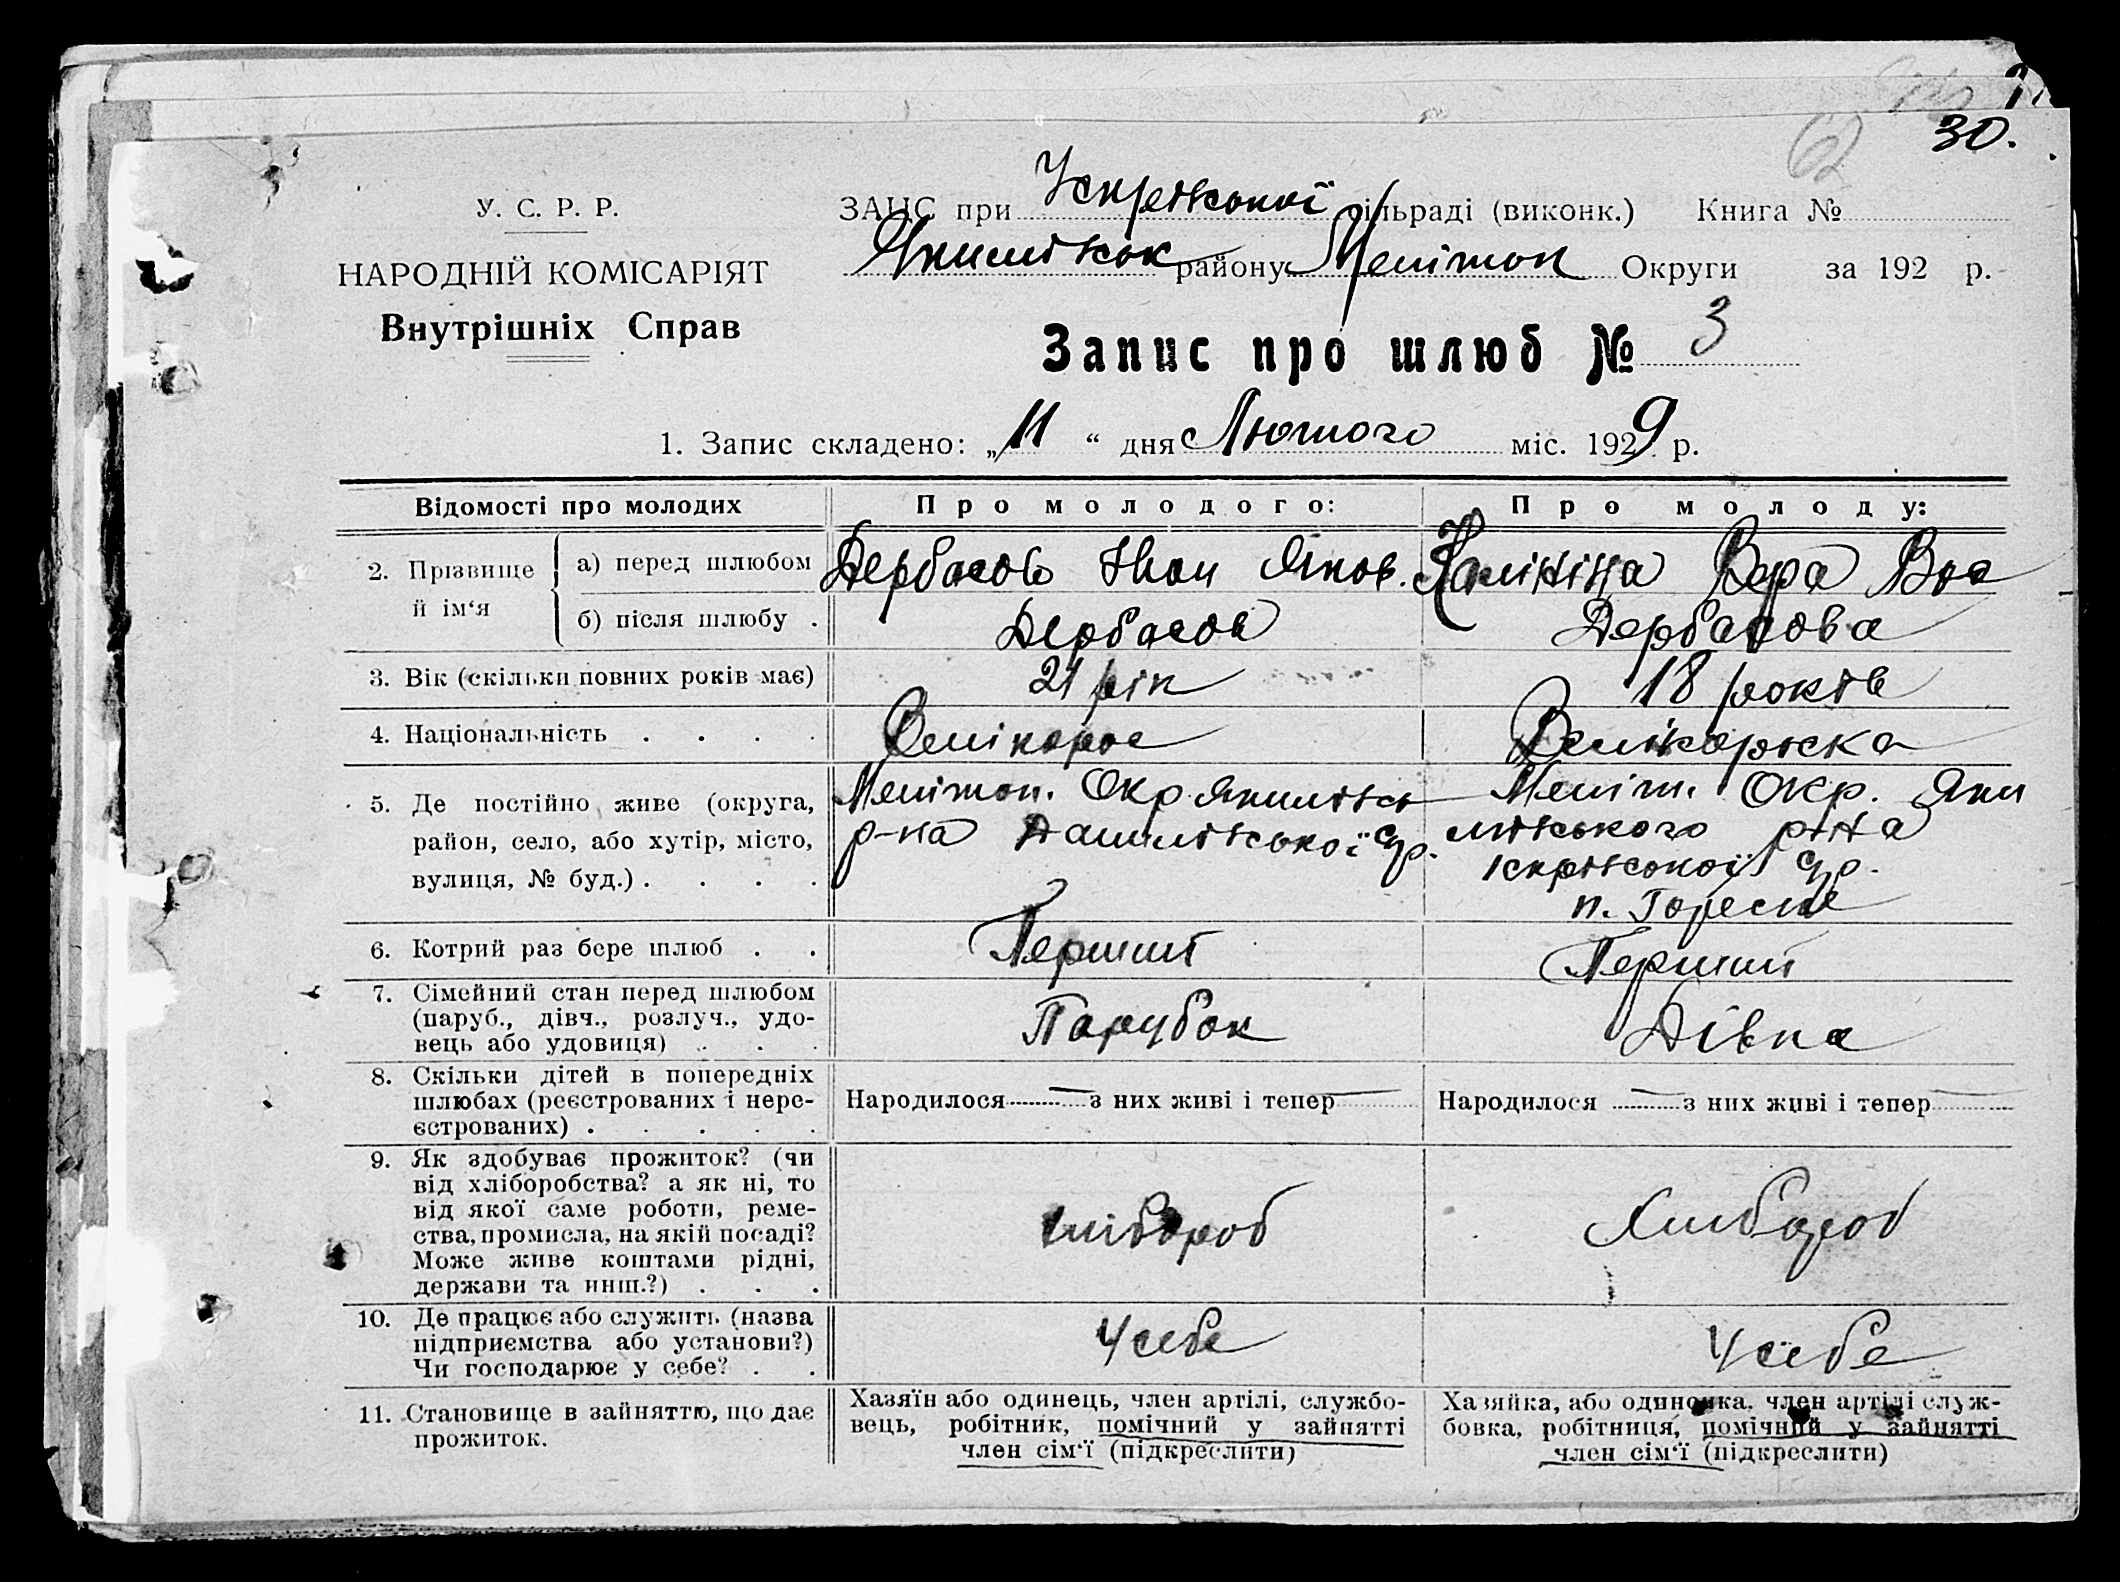 30.
62
У. С. Р. Р.
НАРОДНІЙ КОМІСАРІЯТ
Внутрішніх Справ
ЗАГС при Іскрівської сільраді (виконк.) Книга №
Якимівськ району Меліпоп Округи за 192 р.
Запис про шлюб № 3
1. Запис складено: „11“ дня Лютого міс. 1929 р.
Відомості про молодих
Про молодого:
Про молоду:
2. Прізвище й ім‘я
а) перед шлюбом
Дербасов Іван Яков.
Калініна Вера Вас
б) після шлюбу .
Дербасов
Дербасова
3. Вік (скільки повних років має)
21 рік
18 років
4. Національність . . . .
Велікорос
Велікоруска
5. Де постійно живе (округа,
район, село, або хутір, місто,
вулиця, № буд.) . . . .
Мелітоп. Окр Якимівськ
р-на с/р.
Меліт. Окр. Яки
мівського р-на
Іскрівської с/р.
п.
6. Котрий раз бере шлюб . .
Перший
Перший
7. Сімейний стан перед шлюбом
(паруб., дівч., розлуч., удо-
вець або удовиця) . . .
Парубок
Дівка
8. Скільки дітей в попередніх
шлюбах (реєстрованих і нере-
єстрованих) . . . . .
Народилося — з них живі і тепер —
Народилося — з них живі і тепер —
9. Як здобуває прожиток? (чи
від хліборобства? а як ні, то
від якої саме роботи, реме-
ства, промисла, на якій посаді?
Може живе коштами рідні,
держави та инш.?) . . .
хлібороб
Хлибороб
10. Де працює або служить (назва
підприємства або установи?)
Чи господарює у себе? . .
У себе
У себе
11. Становище в зайняттю, що дає
прожиток.
Хазяїн або одинець, член артілі, службо-
вець, робітник, помічний у зайнятті
член сім‘ї (підкреслити)
Хазяйка, або одиночка, член артілі служ-
бовка, робітниця, помічний у зайнятті
член сім‘ї (підкреслити)